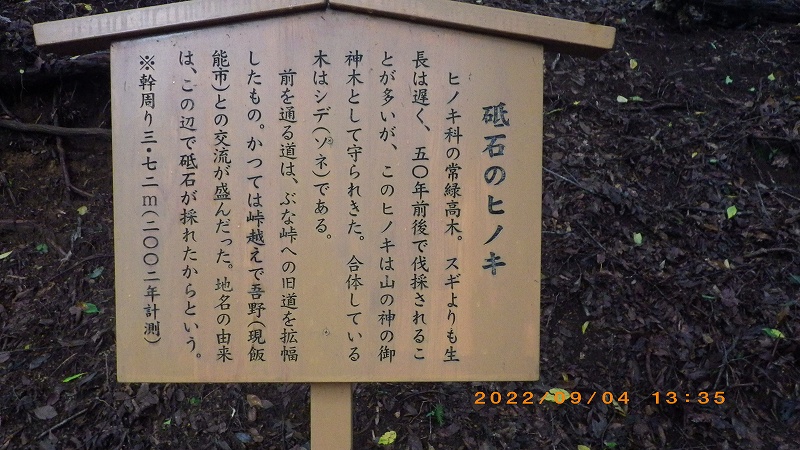 砥石のヒノキ
ヒノキ科の常緑高木。スギよりも生
長は遅く、五〇年前後で伐採されるこ
とが多いが、このヒノキは山の神の御
神木として守られきた。合体している
木はシデ(ソネ)である。
前を通る道は、ぶな峠への旧道を拡幅
したもの。かつては峠越えで吾野(現飯
能市)との交流が盛んだった。地名の由来
は、この辺で砥石が採れたからという。
※幹周り三・七二m(二〇〇二年計測)
2022/09/04 13:35